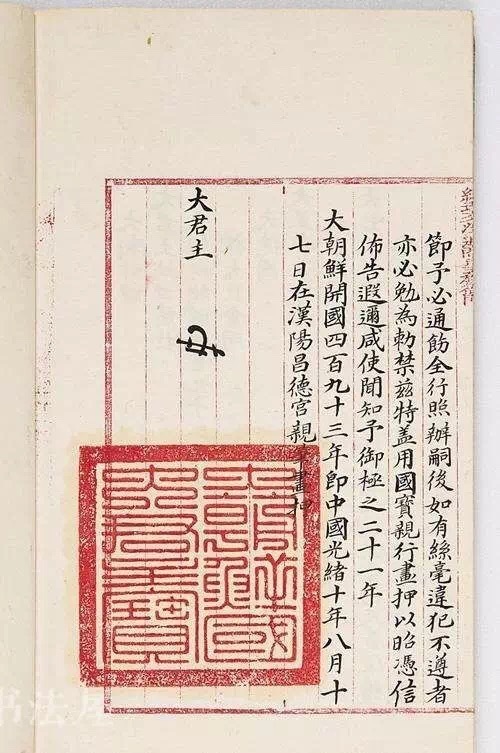 節予必通飭全行照辦嗣後如有絲毫違犯不遵者
亦必勉為勅禁茲特蓋用國寶親行畫押以昭憑信
佈告遐邇咸使聞知予御極之二十一年
大朝鮮開國四百九十三年即中國光緒十年八月十
七日在漢陽昌德宮親筆畫押
大君主
大朝鮮國
大君主寶
书法屋